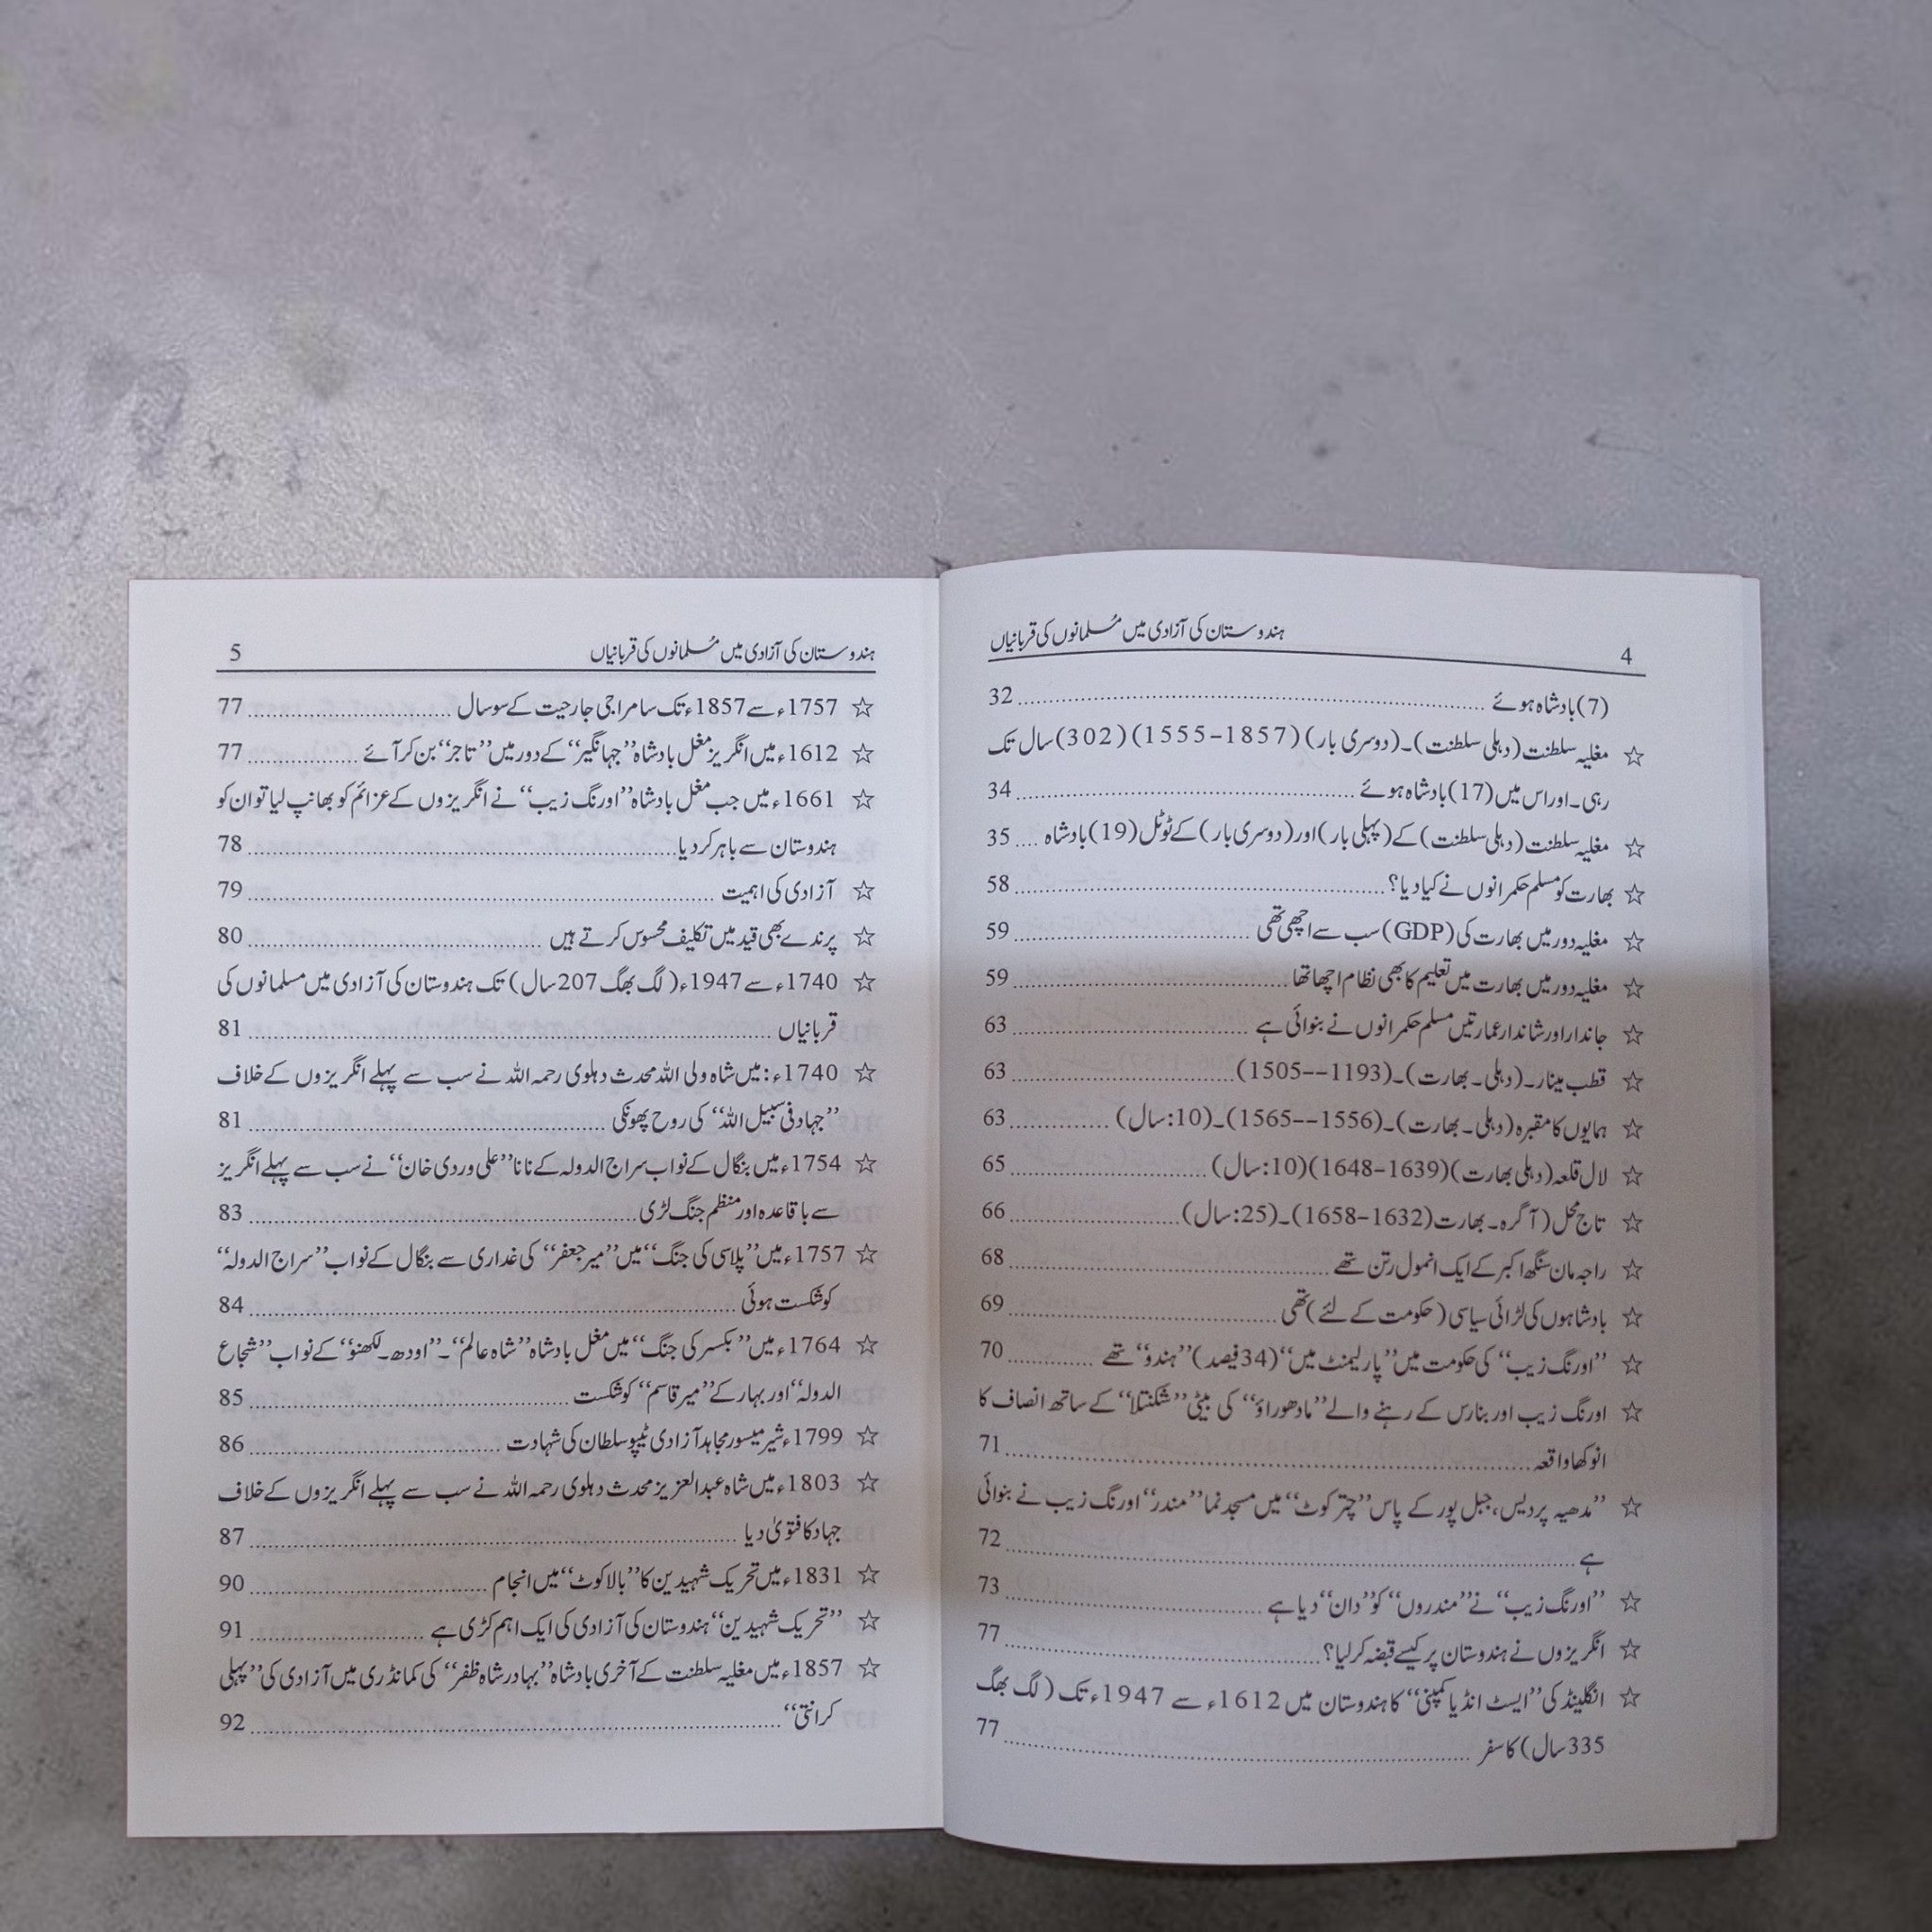 4 ہندوستان کی آزادی میں مُسلمانوں کی قربانیاں
(7) بادشاہ ہوئے ........ 32
☆ مغلیہ سلطنت (دہلی سلطنت)۔ (دوسری بار) (1857-1555) (302) سال تک
رہی۔ اور اس میں (17) بادشاہ ہوئے ........ 34
☆ مغلیہ سلطنت (دہلی سلطنت) کے (پہلی بار) اور (دوسری بار) کے ٹوٹل (19) بادشاہ .... 35
☆ بھارت کو مسلم حکمرانوں نے کیا دیا؟ ........ 58
☆ مغلیہ دور میں بھارت کی (GDP) سب سے اچھی تھی ........ 59
☆ مغلیہ دور میں بھارت میں تعلیم کا بھی نظام اچھا تھا ........ 59
☆ جاندار اور شاندار عمارتیں مسلم حکمرانوں نے بنوائی ہے ........ 63
☆ قطب مینار۔ (دہلی۔ بھارت)۔ (1193--1505) ........ 63
☆ ہمایوں کا مقبرہ (دہلی۔ بھارت)۔ (1556--1565)۔ (10: سال) ........ 63
☆ لال قلعہ (دہلی بھارت) (1639-1648) (10: سال) ........ 65
☆ تاج محل (آگرہ۔ بھارت (1632-1658)۔ (25: سال) ........ 66
☆ راجہ مان سنگھ اکبر کے ایک انمول رتن تھے ........ 68
☆ بادشاہوں کی لڑائی سیاسی (حکومت کے لئے) تھی ........ 69
☆ ’’اورنگ زیب‘‘ کی حکومت میں ’’پارلیمنٹ میں‘‘ (34 فیصد) ’’ہندو‘‘ تھے ........ 70
☆ اورنگ زیب اور بنارس کے رہنے والے ’’مادھوراؤ‘‘ کی بیٹی ’’شکنتلا‘‘ کے ساتھ انصاف کا
انوکھا واقعہ ........ 71
☆ ’’مدھیہ پردیس، جبل پور کے پاس ’’چتر کوٹ‘‘ میں مسجد نما ’’مندر‘‘ اورنگ زیب نے بنوائی
ہے ........ 72
☆ ’’اورنگ زیب‘‘ نے ’’مندروں‘‘ کو ’’دان‘‘ دیا ہے ........ 73
☆ انگریزوں نے ہندوستان پر کیسے قبضہ کر لیا؟ ........ 77
☆ انگلینڈ کی ’’ایسٹ انڈیا کمپنی‘‘ کا ہندوستان میں 1612ء سے 1947ء تک (لگ بھگ
335 سال) کا سفر ........ 77
ہندوستان کی آزادی میں مُسلمانوں کی قربانیاں 5
☆ 1757ء سے 1857ء تک سامراجی جارحیت کے سو سال ........ 77
☆ 1612ء میں انگریز مغل بادشاہ ’’جہانگیر‘‘ کے دور میں ’’تاجر‘‘ بن کر آئے ........ 77
☆ 1661ء میں جب مغل بادشاہ ’’اورنگ زیب‘‘ نے انگریزوں کے عزائم کو بھانپ لیا تو ان کو
ہندوستان سے باہر کر دیا ........ 78
☆ آزادی کی اہمیت ........ 79
☆ پرندے بھی قید میں تکلیف محسوس کرتے ہیں ........ 80
☆ 1740ء سے 1947ء (لگ بھگ 207 سال) تک ہندوستان کی آزادی میں مسلمانوں کی
قربانیاں ........ 81
☆ 1740ء: میں شاہ ولی اللہ محدث دہلوی رحمہ اللہ نے سب سے پہلے انگریزوں کے خلاف
’’جہاد فی سبیل اللہ‘‘ کی روح پھونکی ........ 81
☆ 1754ء میں بنگال کے نواب سراج الدولہ کے نانا ’’علی وردی خان‘‘ نے سب سے پہلے انگریز
سے باقاعدہ اور منظم جنگ لڑی ........ 83
☆ 1757ء میں ’’پلاسی کی جنگ‘‘ میں ’’میر جعفر‘‘ کی غداری سے بنگال کے نواب ’’سراج الدولہ‘‘
کو شکست ہوئی ........ 84
☆ 1764ء میں ’’بکسر کی جنگ‘‘ میں مغل بادشاہ ’’شاہ عالم‘‘۔ ’’اودھ۔ لکھنؤ‘‘ کے نواب ’’شجاع
الدولہ‘‘ اور بہار کے ’’میر قاسم‘‘ کو شکست ........ 85
☆ 1799ء شیر میسور مجاہد آزادی ٹیپو سلطان کی شہادت ........ 86
☆ 1803ء میں شاہ عبدالعزیز محدث دہلوی رحمہ اللہ نے سب سے پہلے انگریزوں کے خلاف
جہاد کا فتویٰ دیا ........ 87
☆ 1831ء میں تحریک شہیدین کا ’’بالاکوٹ‘‘ میں انجام ........ 90
☆ ’’تحریک شہیدین‘‘ ہندوستان کی آزادی کی ایک اہم کڑی ہے ........ 91
☆ 1857ء میں مغلیہ سلطنت کے آخری بادشاہ ’’بہادر شاہ ظفر‘‘ کی کمانڈری میں آزادی کی ’’پہلی
کرانتی‘‘ ........ 92